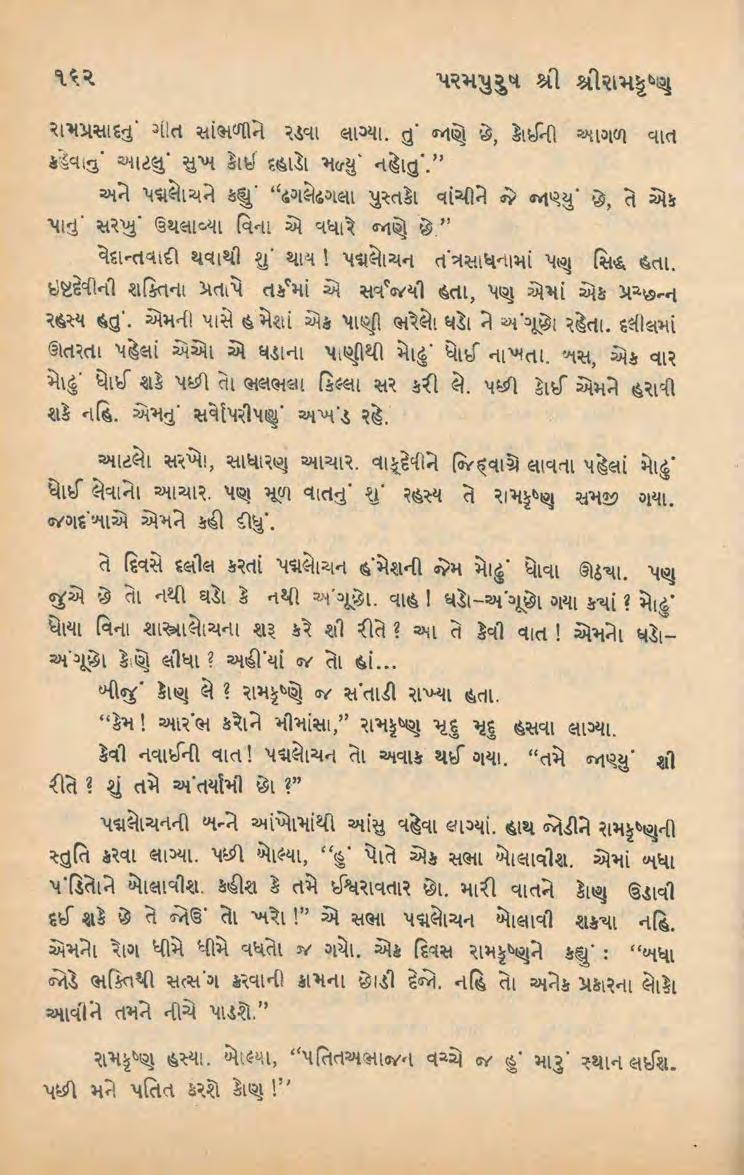 ૧૬૨ પરમપુરુષ શ્રી શ્રીરામકૃષ્ણ
રામપ્રસાદનું ગીત સાંભળીને રડવા લાગ્યા. તું જાણે છે, કોઈની આગળ વાત
કહેવાનું આટલું સુખ કોઈ દહાડો મળ્યું નહોતું.”
અને પદ્મલોચને કહ્યું “ઢગલેઢગલા પુસ્તકો વાંચીને જે જાણ્યું છે, તે એક
પાનું સરખું ઉથલાવ્યા વિના એ વધારે જાણે છે.”
વેદાન્તવાદી થવાથી શું થાય! પદ્મલોચન તંત્રસાધનામાં પણ સિદ્ધ હતા.
ઇષ્ટદેવીની શક્તિના પ્રતાપે તર્કમાં એ સર્વજયી હતા, પણ એમાં એક પ્રચ્છન્ન
રહસ્ય હતું. એમની પાસે હંમેશાં એક પાણી ભરેલો ઘડો ને અંગૂછો રહેતા. દલીલમાં
ઊતરતા પહેલાં એઓ એ ઘડાના પાણીથી મોઢું ધોઈ નાખતા. બસ, એક વાર
મોઢું ધોઈ શકે પછી તો ભલભલા કિલ્લા સર કરી લે. પછી કોઈ એમને હરાવી
શકે નહિ. એમનું સર્વોપરીપણું અખંડ રહે.
આટલો સરખો, સાધારણ આચાર. વાક્દેવીને જિહ્વાગ્રે લાવતા પહેલાં મોઢું
ધોઈ લેવાનો આચાર. પણ મૂળ વાતનું શું રહસ્ય તે રામકૃષ્ણ સમજી ગયા.
જગદંબાએ એમને કહી દીધું.
તે દિવસે દલીલ કરતાં પદ્મલોચન હંમેશની જેમ મોઢું ધોવા ઊઠ્યા. પણ
જુએ છે તો નથી ઘડો કે નથી અંગૂછો. વાહ! ઘડો–અંગૂછો ગયા ક્યાં? મોઢું
ધોયા વિના શાસ્ત્રાલોચના શરૂ કરે શી રીતે? આ તે કેવી વાત! એમનો ઘડો–
અંગૂછો કોણે લીધા? અહીંયાં જ તો હાં...
બીજું કોણ લે? રામકૃષ્ણે જ સંતાડી રાખ્યા હતા.
“કેમ! આરંભ કરોને મીમાંસા,” રામકૃષ્ણ મૃદુ મૃદુ હસવા લાગ્યા.
કેવી નવાઈની વાત! પદ્મલોચન તો અવાક થઈ ગયા. “તમે જાણ્યું શી
રીતે? શું તમે અંતર્યામી છો?”
પદ્મલોચનની બન્ને આંખોમાંથી આંસુ વહેવા લાગ્યાં. હાથ જોડીને રામકૃષ્ણની
સ્તુતિ કરવા લાગ્યા. પછી બોલ્યા, “હું પોતે એક સભા બોલાવીશ. એમાં બધા
પંડિતોને બોલાવીશ. કહીશ કે તમે ઈશ્વરાવતાર છો. મારી વાતને કોણ ઉડાવી
દઈ શકે છે તે જોઉં તો ખરો!” એ સભા પદ્મલોચન બોલાવી શક્યા નહિ.
એમનો રોગ ધીમે ધીમે વધતો જ ગયો. એક દિવસ રામકૃષ્ણને કહ્યું: “બધા
જોડે ભક્તિથી સત્સંગ કરવાની કામના છોડી દેજો. નહિ તો અનેક પ્રકારના લોકો
આવીને તમને નીચે પાડશે.”
રામકૃષ્ણ હસ્યા. બોલ્યા, “પતિતઅભાજન વચ્ચે જ હું મારું સ્થાન લઈશ.
પછી મને પતિત કરશે કોણ!”